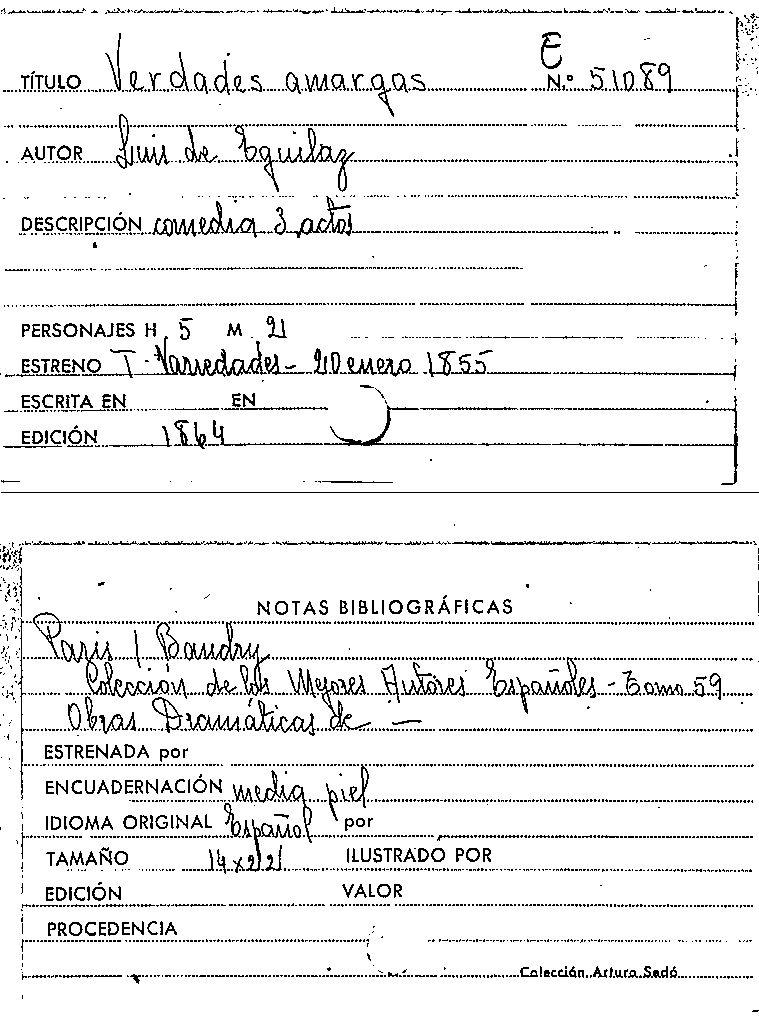 E
TÍTULO Verdades amargas N.º 51089
AUTOR Luis de Eguilaz
DESCRIPCIÓN comedia 3 actos
PERSONAJES H 5 M 2
ESTRENO T. Variedades - 20 enero 1855
ESCRITA EN EN
EDICIÓN 1864
NOTAS BIBLIOGRÁFICAS
Paris / Baudry
Colección de los Mejores Autores Españoles - Tomo 59
Obras Dramáticas de —
ESTRENADA por
ENCUADERNACIÓN media piel
IDIOMA ORIGINAL Español por
TAMAÑO 14x22 ILUSTRADO POR
EDICIÓN VALOR
PROCEDENCIA
Colección Arturo Sedó